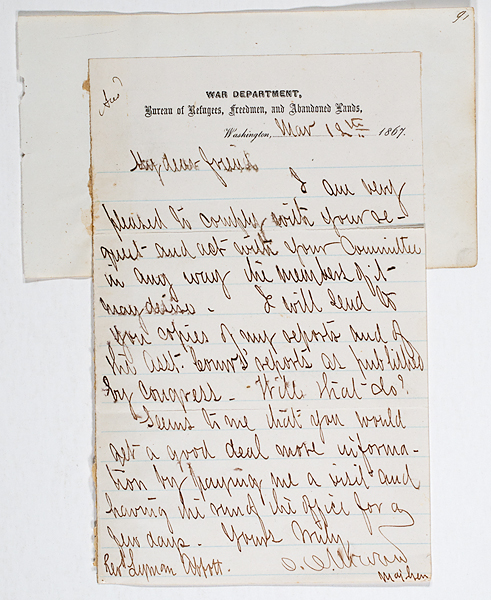 91
Ans?
WAR DEPARTMENT,
Bureau of Refugees, Freedmen, and Abandoned Lands,
Washington, Mar 12th 1867.
My dear friend
I am very
pleased to comply with your re-
quest and act with your Committee
in any way the members of it
may desire. I will send to
you copies of my reports and of
the Asst. Comrs reports as published
by Congress. Will that do?
Seems to me that you would
get a good deal more informa-
tion by paying me a visit and
having the run of the office for a
few days. Yours truly,
O. O. Howard
Maj. Gen
Rev. Lyman Abbott.